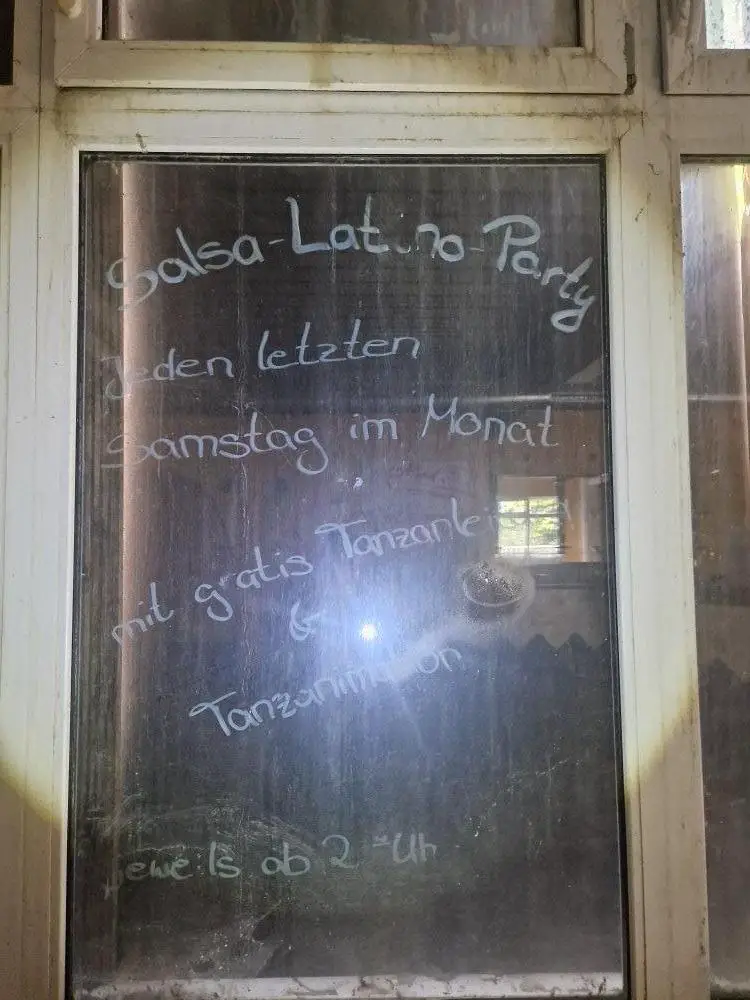 Salsa-Latino-Party
Jeden letzten
Samstag im Monat
mit gratis
&
Tanzanimation
jeweils ab